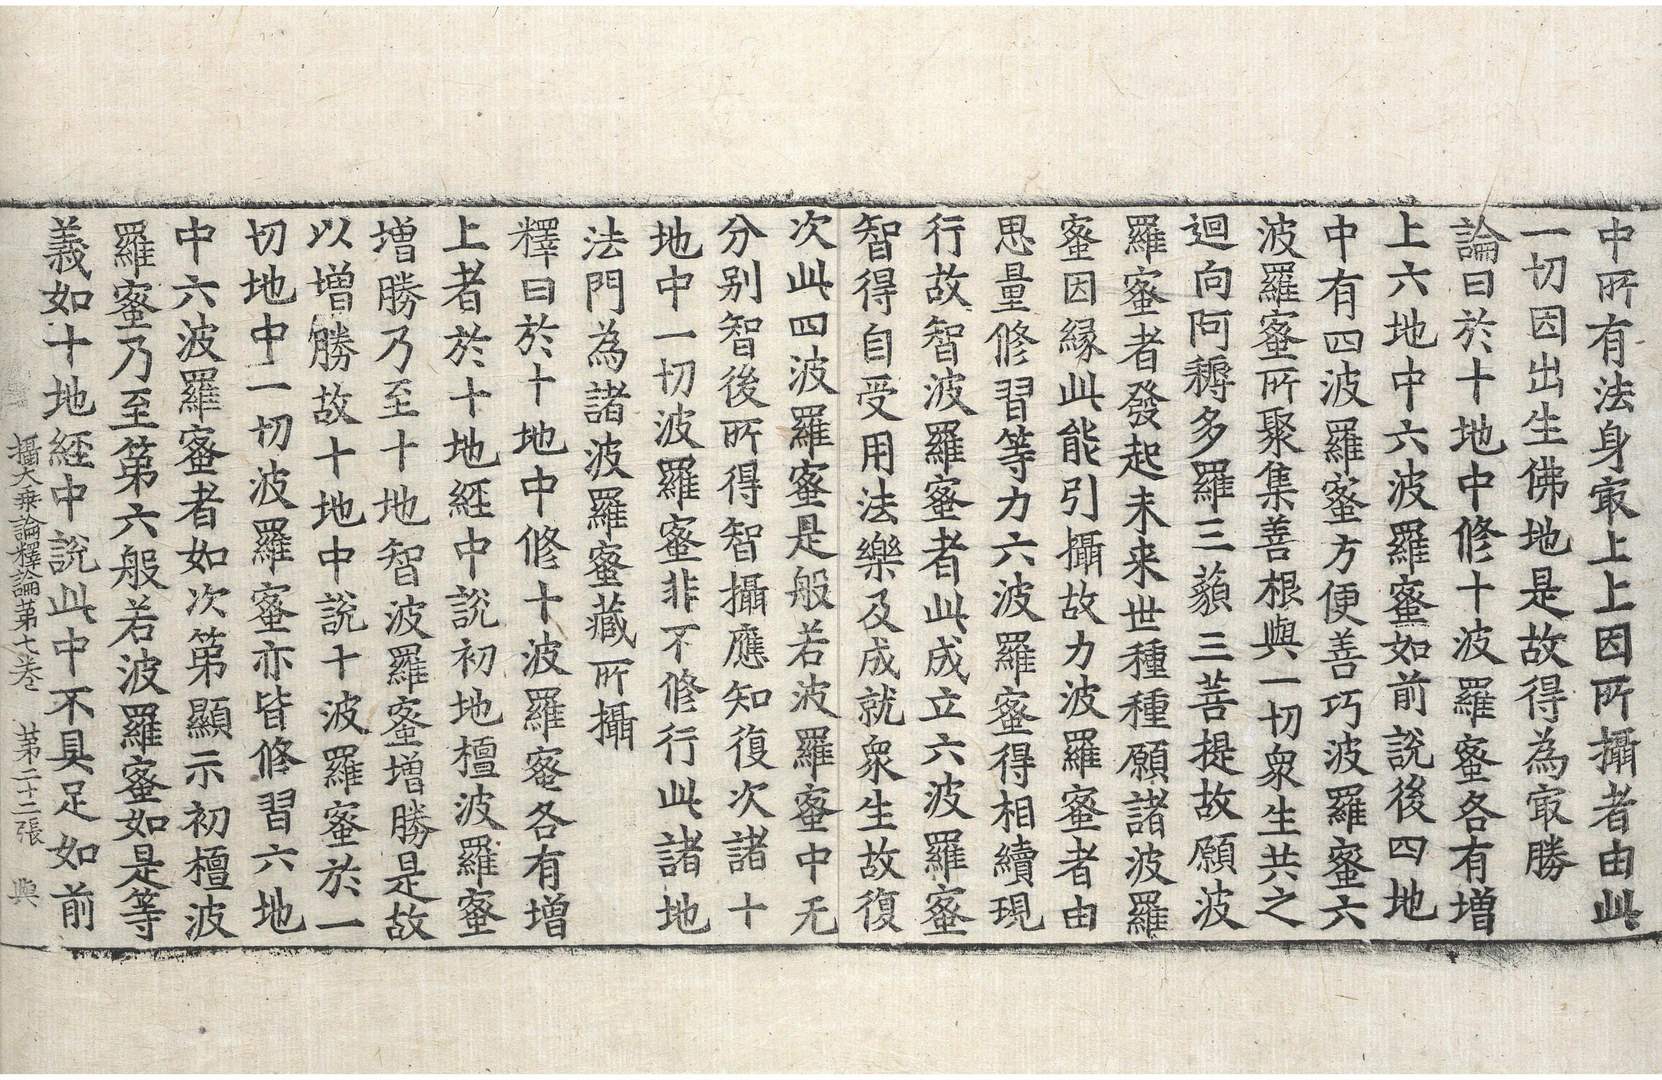 中所有法身㝡上上因所攝者由此
一切因出生佛地是故得為㝡勝
論曰於十地中修十波羅蜜各有增
上六地中六波羅蜜如前說後四地
中有四波羅蜜方便善巧波羅蜜六
波羅蜜所聚集善根與一切衆生共之
迴向阿耨多羅三藐三菩提故願波
羅蜜者發起未来世種種願諸波羅
蜜因緣此能引攝故力波羅蜜者由
思量修習等力六波羅蜜得相續現
行故智波羅蜜者此成立六波羅蜜
智得自受用法樂及成就衆生故復
次此四波羅蜜是般若波羅蜜中无
分别智後所得智攝應知復次諸十
地中一切波羅蜜非不修行此諸地
法門為諸波羅蜜藏所攝
釋曰於十地中修十波羅蜜各有增
上者於十地經中說初地檀波羅蜜
增勝乃至十地智波羅蜜增勝是故
以增勝故十地中說十波羅蜜於一
切地中一切波羅蜜亦皆修習六地
中六波羅蜜者如次第顯示初檀波
羅蜜乃至第六般若波羅蜜如是等
義如十地經中說此中不具足如前
攝大乗論釋論第七卷 第二十二張 與